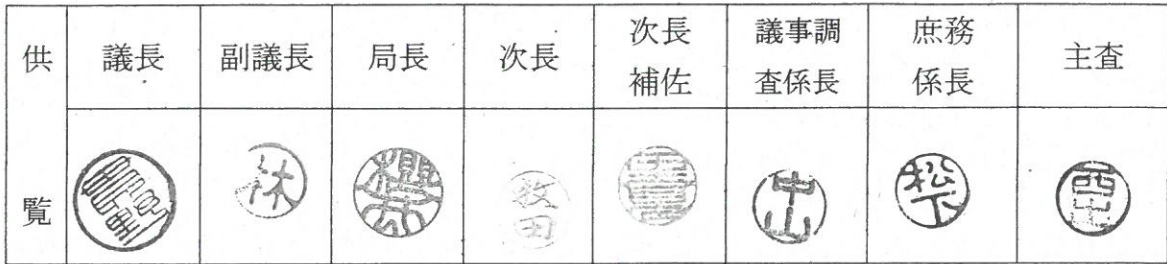 供覧
議長
副議長
局長
次長
次長
補佐
議事調
査係長
庶務
係長
主査
林
牧田
中山
松下